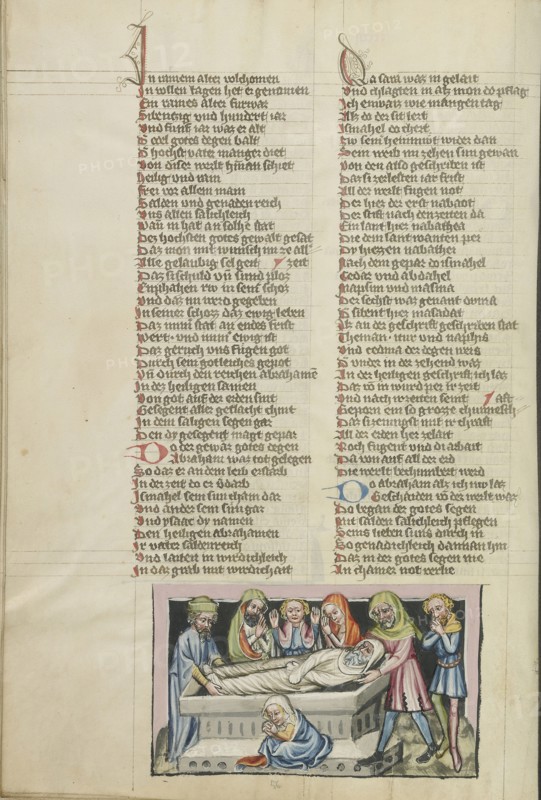 In minem alter volchomen
In wollen tagen het er genomen
Ein raines alter furwar
Sibentzig und hundert iar
Und funf iar waz er alt
D edel gotes degen balt
D hochst vater manger diet
Von diser werlt hinan schiet
Heilig und rain
Frei vor allem main
Salden und genaden reich
Uns allen salichleich
Wan in hat an solhe stat
Des hochsten gotes gewalt gesat
Daz mon mit wunsch im ze all
Alle gelaubig sel geit zeit
Daz si schuld un sund ploz
Emphahen rw in seiner schoz
Und daz im werd gegeben
In seiner schozz daz ewig leben
Daz nimt stat an endes frist
Wert und nimt ewig ist
Daz geruch uns fugen got
Durch sein gotleiches gepot
Un durch den reichen abrahamen
In der heiligen samen
Von got auf der erden sint
Gesegent aller geslacht chint
In dem saligen segen gar
Den dy gesegent magt gepar
Do der gewar gotes degen
Abraham waz tot gelegen
So daz er an dem leib erstarb
In der zeit do er verdarb
Ismahel sein sun cham dar
Und ander sein sun gar
Und ysaac dy namen
Den heiligen abrahamen
Ir vater saldenreich
Und laiten in wirdichleich
In daz grab mit wirdichait
Da sara waz in gelait
Und chlagten in alz mon do pflag
Ich enwaiz wie mangen tag
Alz do der sit lert
Ismahel do chert
Zw sein heimmut wider dan
Sein weib im zehen sun gewan
Von den also geschriben ist
Daz si zerlesten iar frist
All der werlt fugen not
Der hiez der erst nabaot
Der stift nach den zeiten da
Ein lant hiez nabathea
Die dem lant wanten per
Dy hiezzen nabather
Nach dem gepar do ismahel
Cedar und abdahel
Mapsim und masma
Der sechst waz genant duma
D sibent hiez massdat
Als an der geschrift geschriben stat
Theman itur und naphis
Und cedma der degen weis
D under in der zehend waz
In der heiligen geschrift ich las
Daz von in wurd per ir zeit
Und nach ir zeiten seint
Geporn ein so grozze chunnschaft
Daz si zeiungst mit ir chraft
All der erden her zelait
Noch fugent und di arbait
Da von auf all der erd
Die werlt bechumbert werd
Do abraham alz ich nw las
Geschaiden von der werlt waz
Do began der gotes segen
Mit salden salichleich pflegen
Seins lieben suns durch in
So genadichleich dannan hin
Daz in der gotes segen nie
In chainer not verlie